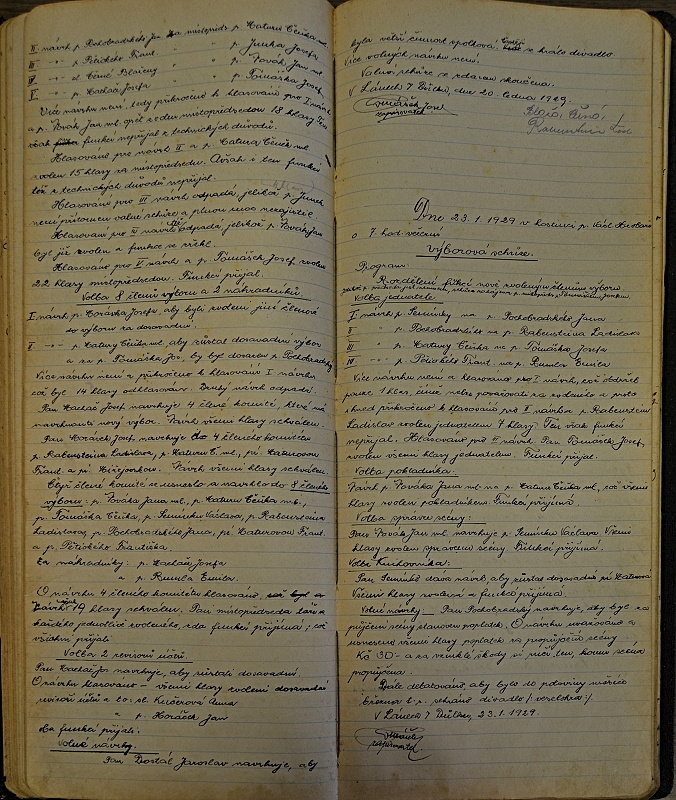 II návrh p. Pochobradský Jan na místopředs. p. Matura Čeněk ml.
III " p. Peřického Frant. " " p. Junka Josefa
IV " sl. Černé Blaženy " " p. Novák Jan ml.
V " p. Machač Josefa " " p. Tomášek Josef
Více návrhů není, tedy přikročeno k hlasování pro I návrh
a p. Novák Jan ml. opět zvolen místopředsedou 18 hlasy. Ten
však funkci nepřijal z technických důvodů.
Hlasováno pro návrh II a p. Matura Čeněk ml.
zvolen 15 hlasy za místopředsedu. Avšak i ten funkci
též z technických důvodů nepřijal.
Hlasováno pro III návrh odpadá, jelikož p. Junek
není přítomen valné schůze a plnou moc nezajistil.
Hlasováno pro IV návrh odpadá, jelikož p. Novák Jan
byl již zvolen a funkce se zřekl.
Hlasováno pro V návrh a p. Tomášek Josef zvolen
22 hlasy místopředsedou. Funkci přijal.
Volba 8 členů výboru a 2 náhradníků.
I návrh p. Horáčka Josefa aby byli zvoleni jiní členové
do výboru za dosavadní.
II " p. Matury Čeňka ml. aby zůstal dosavadní výbor
a za p. Tomáška Jos. by byl dosazen p. Pochobradský
Více návrhů není a přikročeno k hlasování I návrhu
což byl 14 hlasy odhlasován. Druhý návrh odpadl.
Pan Machač Josef navrhuje 4 členné komité, které má
navrhnouti nový výbor. Návrh všemi hlasy schválen.
Pan Horáček Josef navrhuje do 4 členného komitétu
p. Rabensteina Ladislava, p. Maturu Č. ml., pí. Maturovou
Frant. a pí. Návrh všemi hlasy schválen.
Čtyř členné komité se usneslo a navrhlo do 8 členého
výboru: p. Nováka Jana ml., p. Maturu Čeňka ml.,
p. Tomáška Čeňka, p. Semínku Václava, p. Rabensteina
Ladislava, p. Pochobradského Jana, pí. Maturovou Frant.
a p. Peřického Františka.
Za náhradníky: p. Machač Josefa
a p. Rumla Emila.
O návrhu 4 členného komitétu hlasováno,
Návrh 19 hlasy schválen. Pan místopředseda táže se
každého jednotlivě zvoleného, zda funkci přijímá; což
všichni přijali.
Volba 2 revisorů účtů.
Pan Machač Jos. navrhuje, aby zůstali dosavadní.
O návrhu hlasováno – všemi hlasy zvoleni dosavadní
revisoři účtů a to: sl. Kučerová Anna
" p. Horáček Jan
Oba funkci přijali.
Volné návrhy.
Pan Dostál Jaroslav navrhuje, aby
byla větší činnost spolková. se hrálo divadlo
Více volných návrhů není.
Valná schůze se zdarem skončena.
V Lánech / Důlku, dne 20. ledna 1929.
Tomášek Josef
zapisovatel
Dne 23.1.1929 v hostinci p. Václ.
o 7 hod. večerní
výborová schůze.
Program:
Rozdělení funkcí nově zvoleným členům výboru.
Volba jednatele:
I návrh p. Semínky na p. Pochobradského Jana
II " p. Pochobradského na p. Rabensteina Ladislava
III " p. Matury Čeňka na p. Tomáška Josefa
IV " p. Peřického Frant. na p. Rumla Emila
Více návrhů není a hlasováno pro I návrh, což obdržel
pouze 1 hlas, čímž nelze považovati za zvoleného a proto
ihned přikročeno k hlasování pro II návrh a p. Rabenstein
Ladislav zvolen jednatelem 7 hlasy. Ten však funkci
nepřijal. Hlasováno pro III návrh Pan Tomášek Josef,
zvolen všemi hlasy jednatelem. Funkci přijal.
Volba pokladníka.
Návrh p. Nováka Jana ml. na p. Matura Čeňka ml., což všemi
hlasy zvolen pokladníkem. Funkci přijímá.
Volba správce scény:
Pan Novák Jan ml. navrhuje p. Semínku Václava. Všemi
hlasy zvolen správcem scény. Funkci přijímá.
Volba knihovníka:
Pan Semínka dává návrh, aby zůstala dosavadní pí. Maturová
Všemi hlasy zvolena a funkci přijímá.
Volné návrhy Pan Pochobradský navrhuje, aby byl za
půjčení scény stanoven poplatek. O návrhu uvažováno a
usneseno všemi hlasy poplatek za propůjčení scény
Kč 30– a za vzniklé škody ručí ten, komu scéna
propůjčena.
Dále debatováno, aby bylo do poloviny měsíce
března t. r. sehráno divadlo /: veselohra :/.
V Lánech / Důlku, 23.1.1929.
Tomášek
zapisovatel